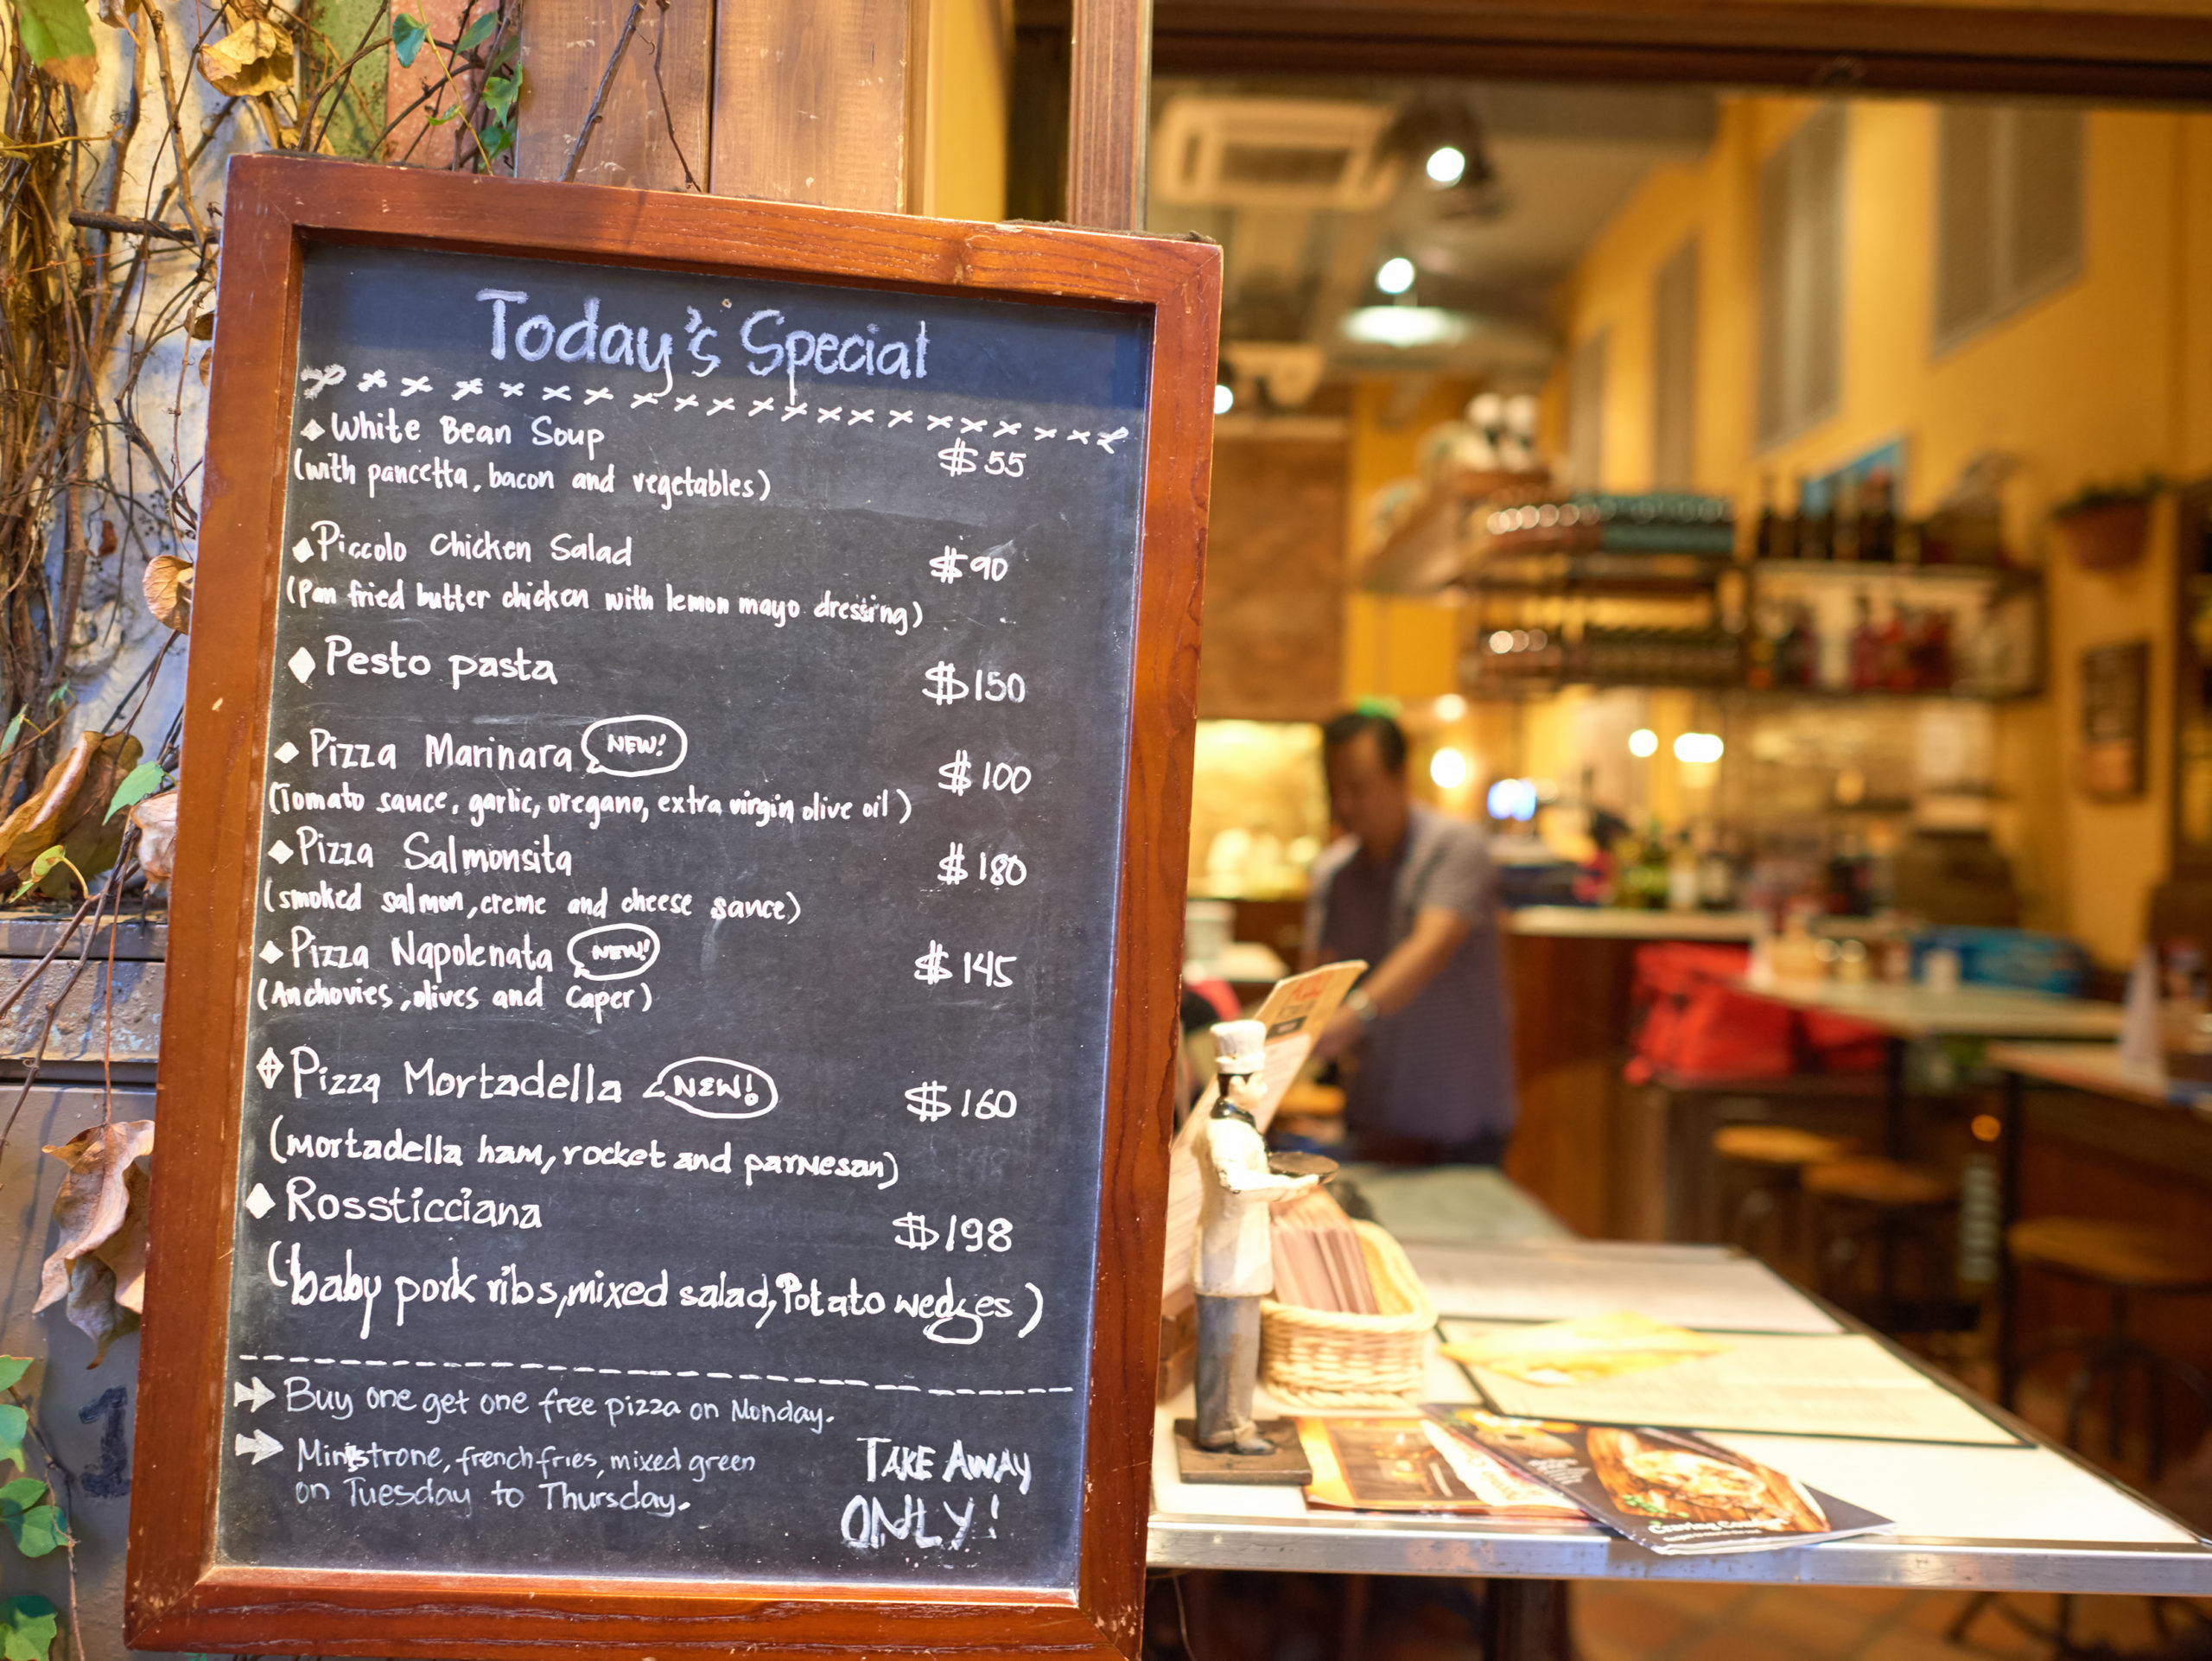 Today's Special
White Bean Soup $55
(with pancetta, bacon and vegetables)
Piccolo Chicken Salad $90
(Pan fried butter chicken with lemon mayo dressing)
Pesto pasta $150
Pizza Marinara NEW! $100
(Tomato sauce, garlic, oregano, extra virgin olive oil)
Pizza Salmonsita $180
(smoked salmon, creme and cheese sauce)
Pizza Napolenata NEW! $145
(Anchovies, olives and Caper)
Pizza Mortadella NEW! $160
(mortadella ham, rocket and parmesan)
Rossticciana $198
(baby pork ribs, mixed salad, Potato wedges)
Buy one get one free pizza on Monday.
Ministrone, french fries, mixed green
on Tuesday to Thursday.
TAKE AWAY
ONLY!